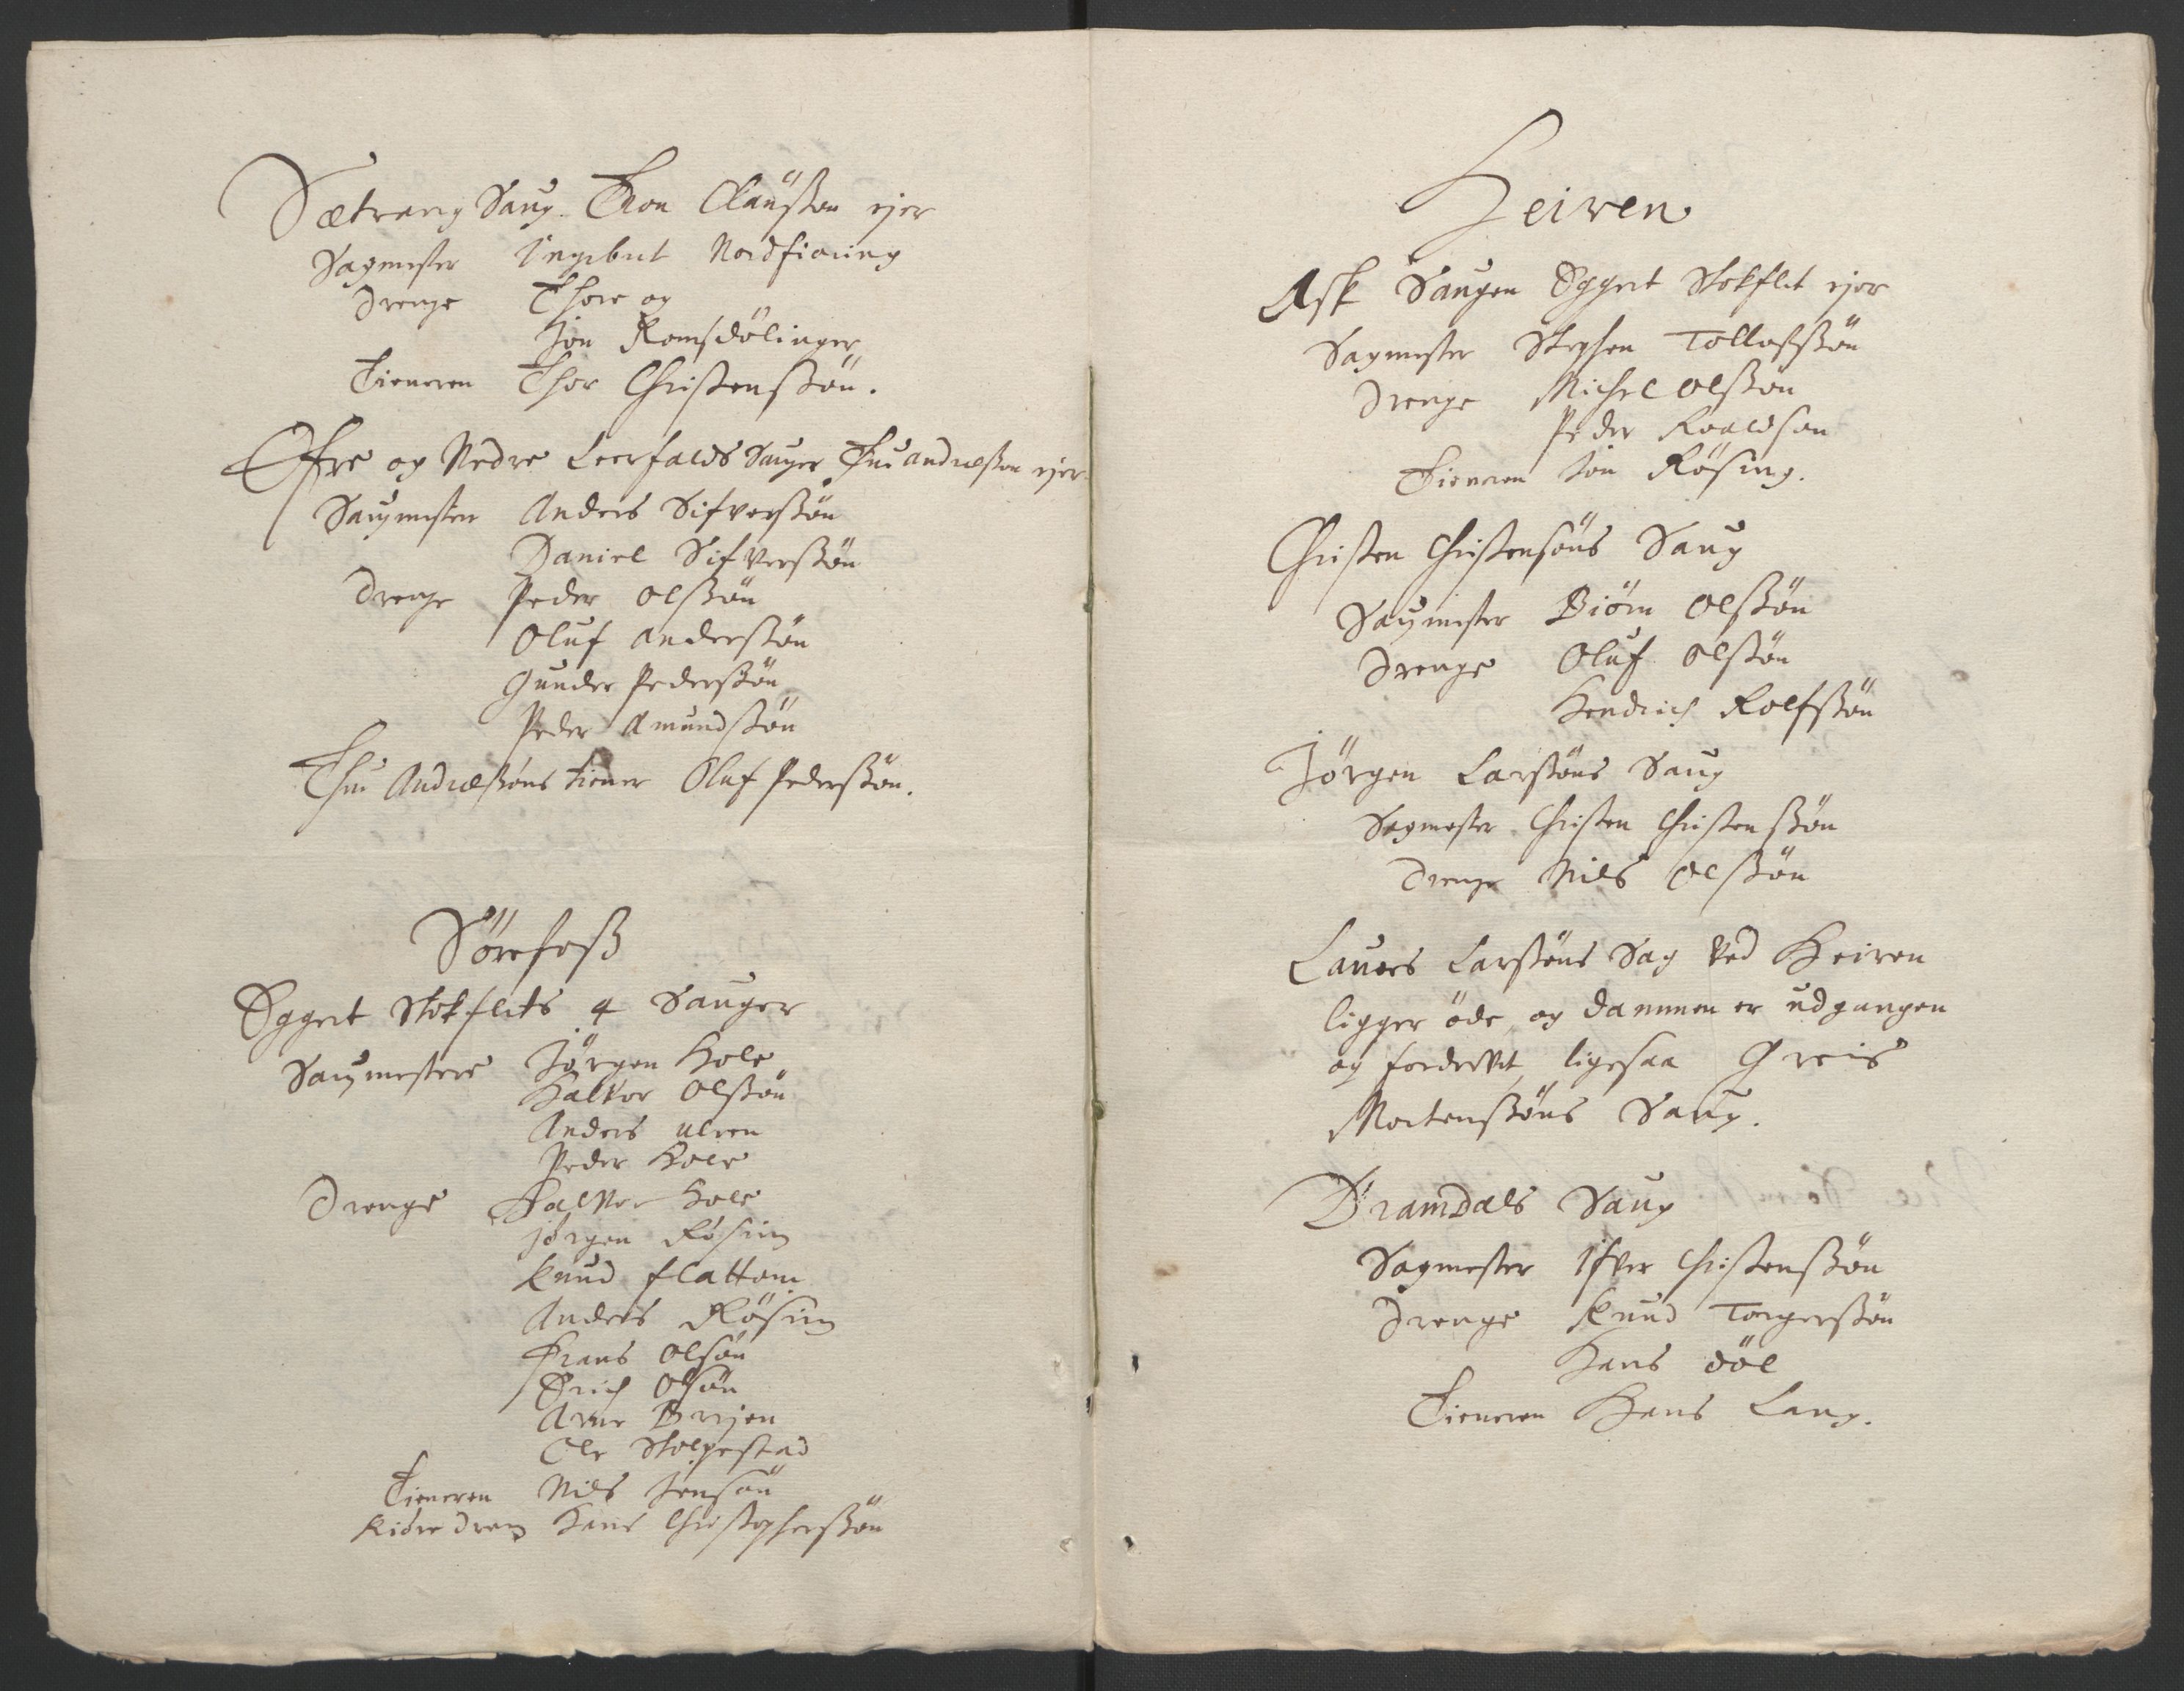 Sætrang Saug. Thon Claüßøn ejer
Sagmester Ingebret Nordfioring
Drenge Thore og
Jon Romsdölinger
Tieneren Thor Christensön.
Öfre og Nedre Leerfalds Sauger Thue Andræßøn ejer
Saugmester Anders Sifverßön
Daniel Sifverßön
Drenge Peder Olßön
Oluf Anderßön
Gunder Pederßön
Peder Amundßön
Thue Andræßöns tiener Oluf Pederßön.
Sörefoß
Eggert Stokflets 4 Sauger
Saugmestere Jörgen Hole
Halvor Olßön
Anders
Peder Hole
Drenge Halvor Hole
Jörgen Rösing
Knud flattom
Anders Rösing
Frans Olsön
Erich Olsön
Arne
Ole Stolpestad
Tieneren Nils Jensön
Kiöre dreng Hans Christopherßön
Heiren
Ask Saugen Eggert Stokflet ejer
Sagmester Stephen Tollofßön
Drenge Michel Olßön
Peder Roaldsøn
Tieneren Jon Rösing.
Christen Christensöns Saug
Saugmester Biörn Olßön
Drenge Oluf Olßön
Hendrich Rolfßön
Jörgen Larßöns Saug
Sagmester Christen Christenßön
Drenge Nils Olßön
Laurs Larßöns Sag ved Heiren
ligger öde, og dammen er udgangen
og fordervet, ligesaa Greis
Mortenßöns Saug.
Bramdals Saug
Sagmester Ifver Christenßön
Drenge Knud Torgerßön
Hans döl
Tieneren Hans Lang.